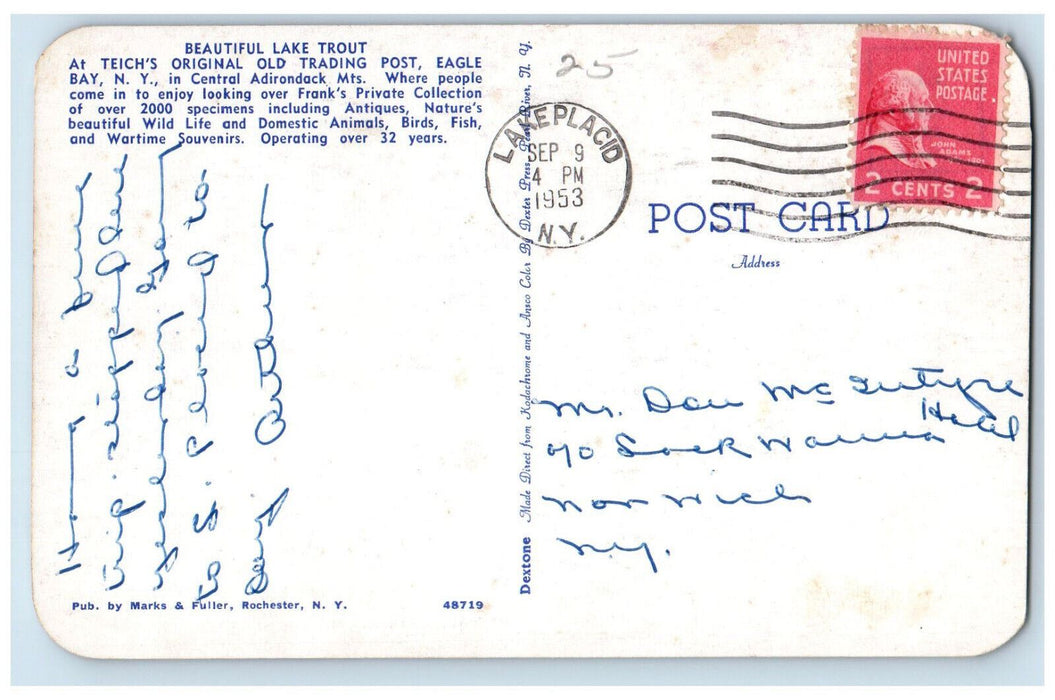 BEAUTIFUL LAKE TROUT
At TEICH'S ORIGINAL OLD TRADING POST, EAGLE
BAY, N. Y., in Central Adirondack Mts. Where people
come in to enjoy looking over Frank's Private Collection
of over 2000 specimens including Antiques, Nature's
beautiful Wild Life and Domestic Animals, Birds, Fish,
and Wartime Souvenirs. Operating over 32 years.
a fine
trip. stopped here
yesterday
to S. Placid to-
day Arthur
Pub. by Marks & Fuller, Rochester, N. Y.
48719
Dextone Made Direct from Kodachrome and Ansco Color By Dexter Press, Pearl River, N. Y.
25
LAKE PLACID
SEP 9
4 PM
1953
N.Y.
UNITED
STATES
POSTAGE
JOHN
ADAMS
2 CENTS 2
POST CARD
Address
Mr. Dan McIntyre
Hotel
Norwich
N.Y.